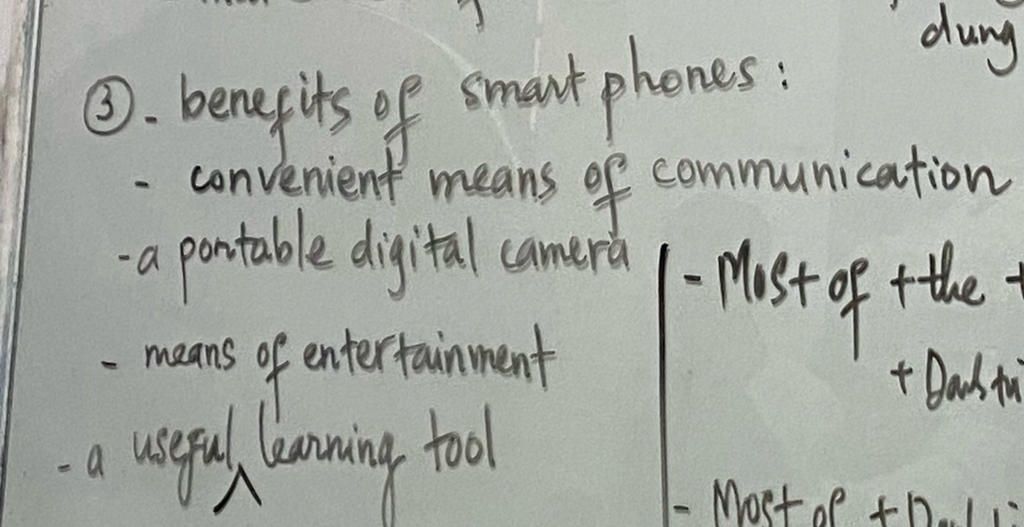 dung
③. benefits of smart phones:
- convenient means of communication
- a portable digital camera
- means of entertainment
- a useful learning tool
- Most of + the +
+
- Most of +